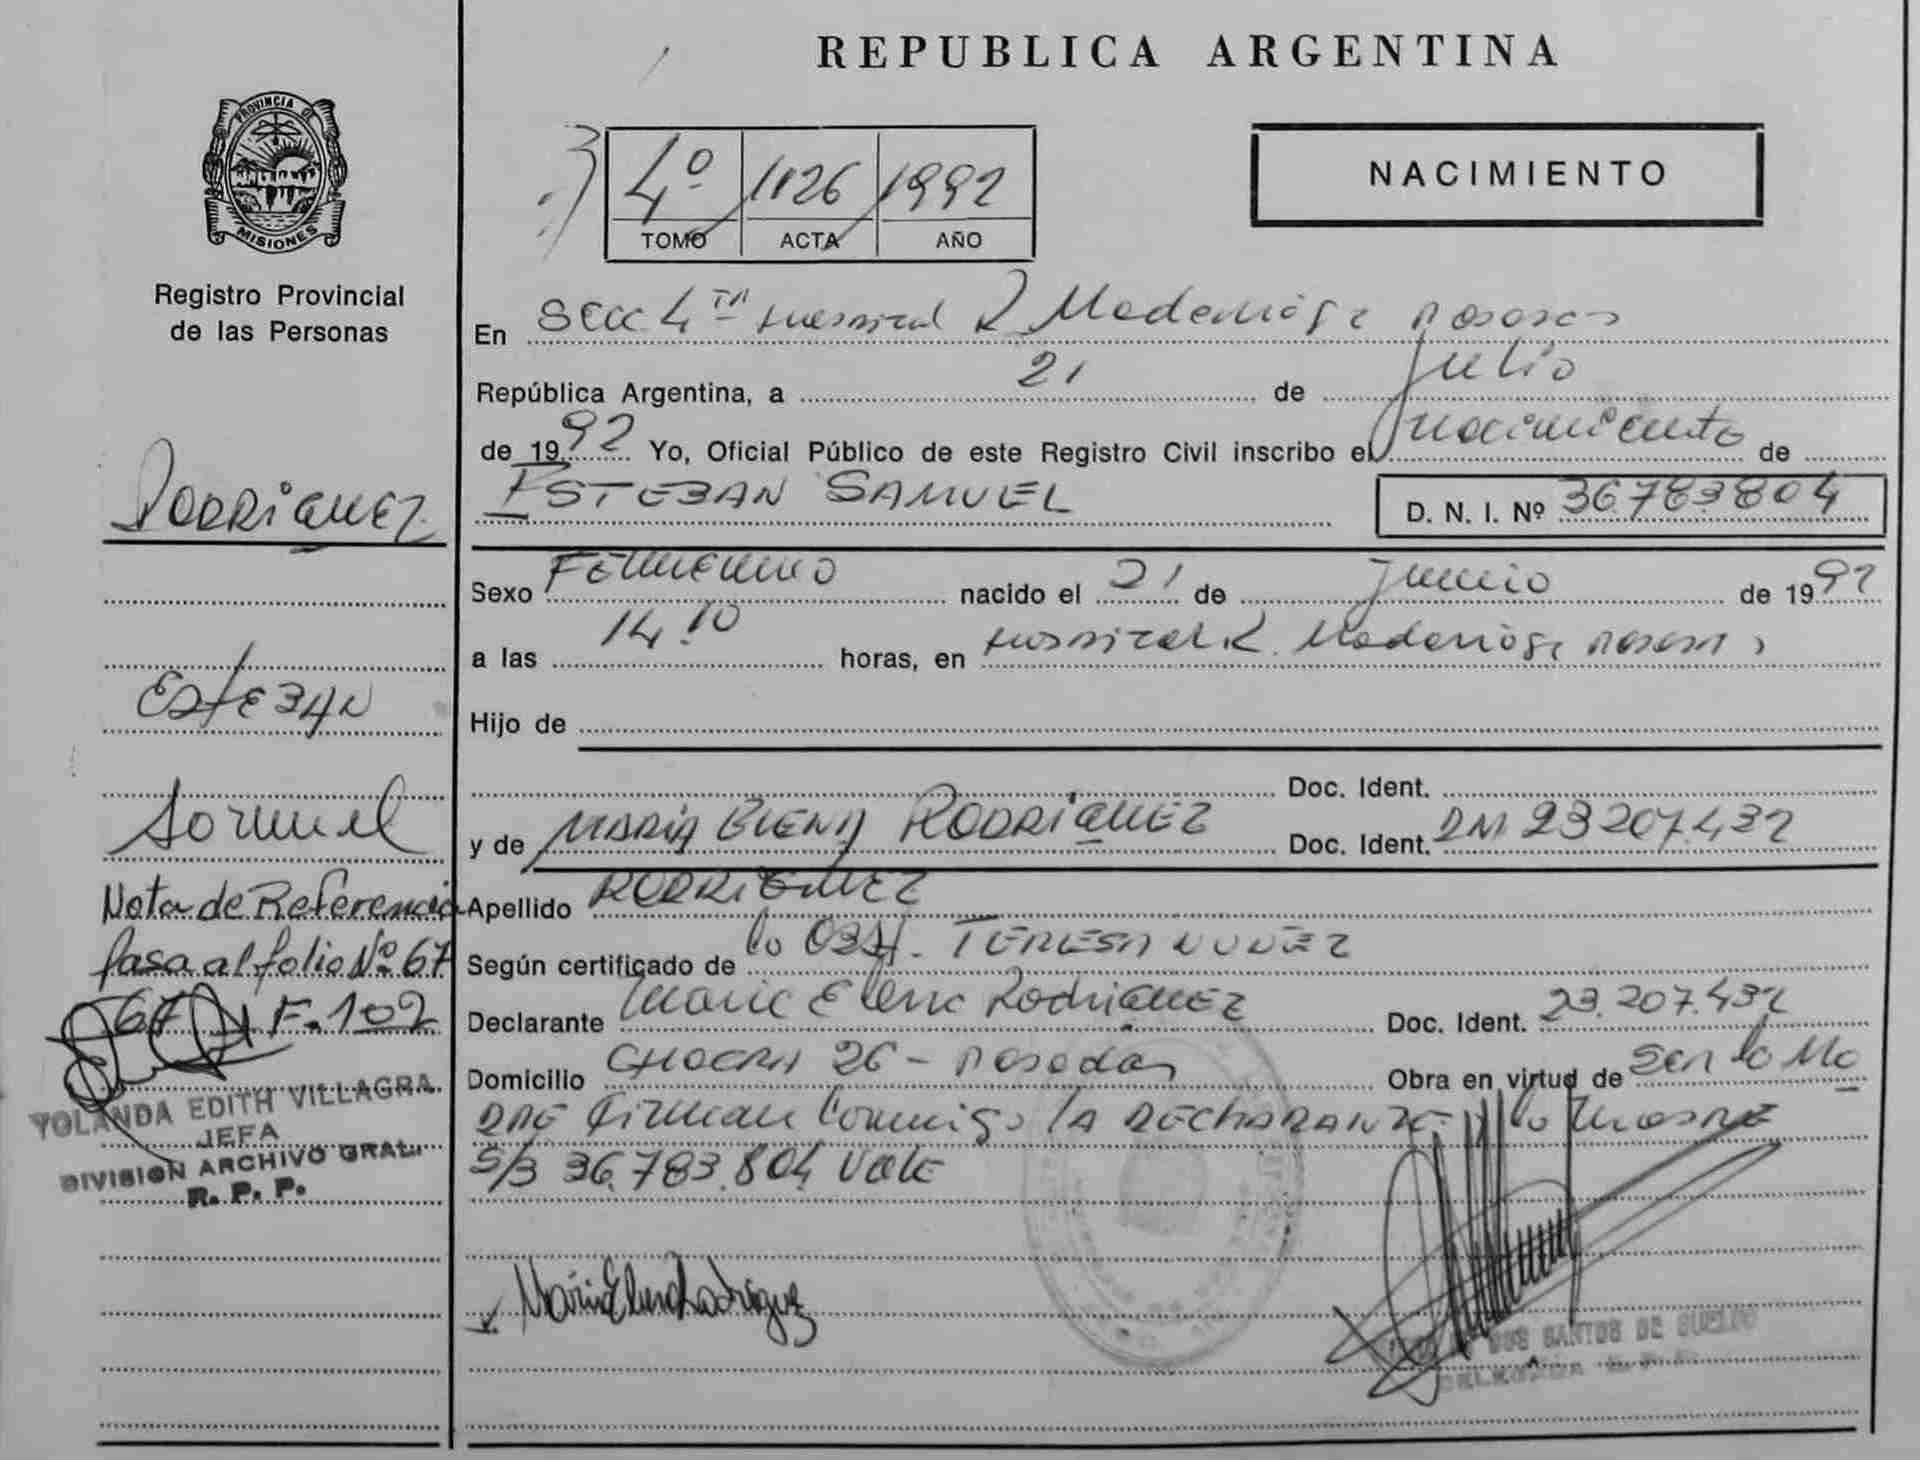 REPUBLICA ARGENTINA
PROVINCIA DE
MISIONES
Registro Provincial
de las Personas
4º 1126 1992
TOMO ACTA AÑO
NACIMIENTO
En Secc 4ta Hospital R Madariaga Posadas
República Argentina, a 21 de Julio
de 1992 Yo, Oficial Público de este Registro Civil inscribo el nacimiento de
ESTEBAN SAMUEL D. N. I. Nº 36783804
Sexo Femenino nacido el 21 de Junio de 1992
a las 14.10 horas, en Hospital R. Madariaga Posadas
Hijo de
Doc. Ident.
y de MARIA ELENA RODRIGUEZ Doc. Ident. DNI 23207.432
Apellido RODRIGUEZ
Según certificado de la Obst. TERESA NUÑEZ
Declarante Maria Elena RodriGUEZ Doc. Ident. 23.207.432
Domicilio CHACRA 26 - Posadas Obra en virtud de Ser la Ma
DRE Firman Conmigo LA DECLARANTE y la Madre
S/B 36.783.804 Vale
Maria Elena Rodriguez
DOS SANTOS DE
DELEGADA
RODRIGUEZ
ESTEBAN
Samuel
Nota de Referencia
Pasa al folio Nº 67
67 F. 102
YOLANDA EDITH VILLAGRA
JEFA
DIVISION ARCHIVO GRAL.
R. P. P.